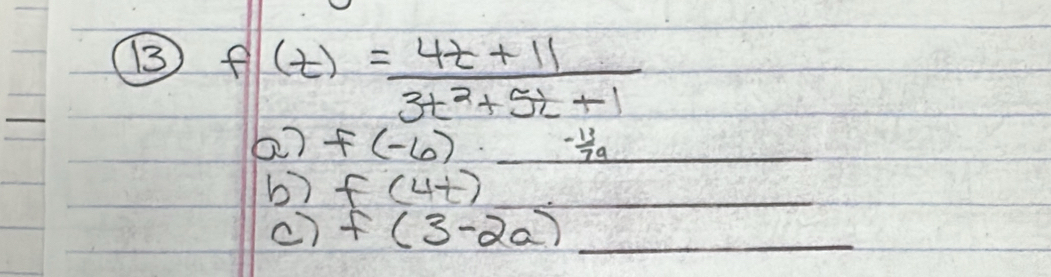 13 f(t) = 4t + 11
3t² + 5t + 1
a) f(-6) -13/79
b) f(4t)
c) f(3-2a)